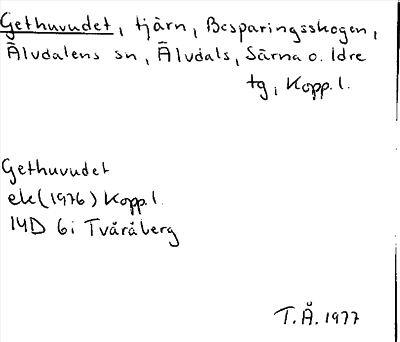 Gethuvudet, tjärn, Besparingsskogen,
Älvdalens sn, Älvdals, Särna o. Idre
tg, Kopp. l.
Gethuvudet
ek (1976) Kopp. l.
14D 6i Tvåråberg
T.Å. 1977